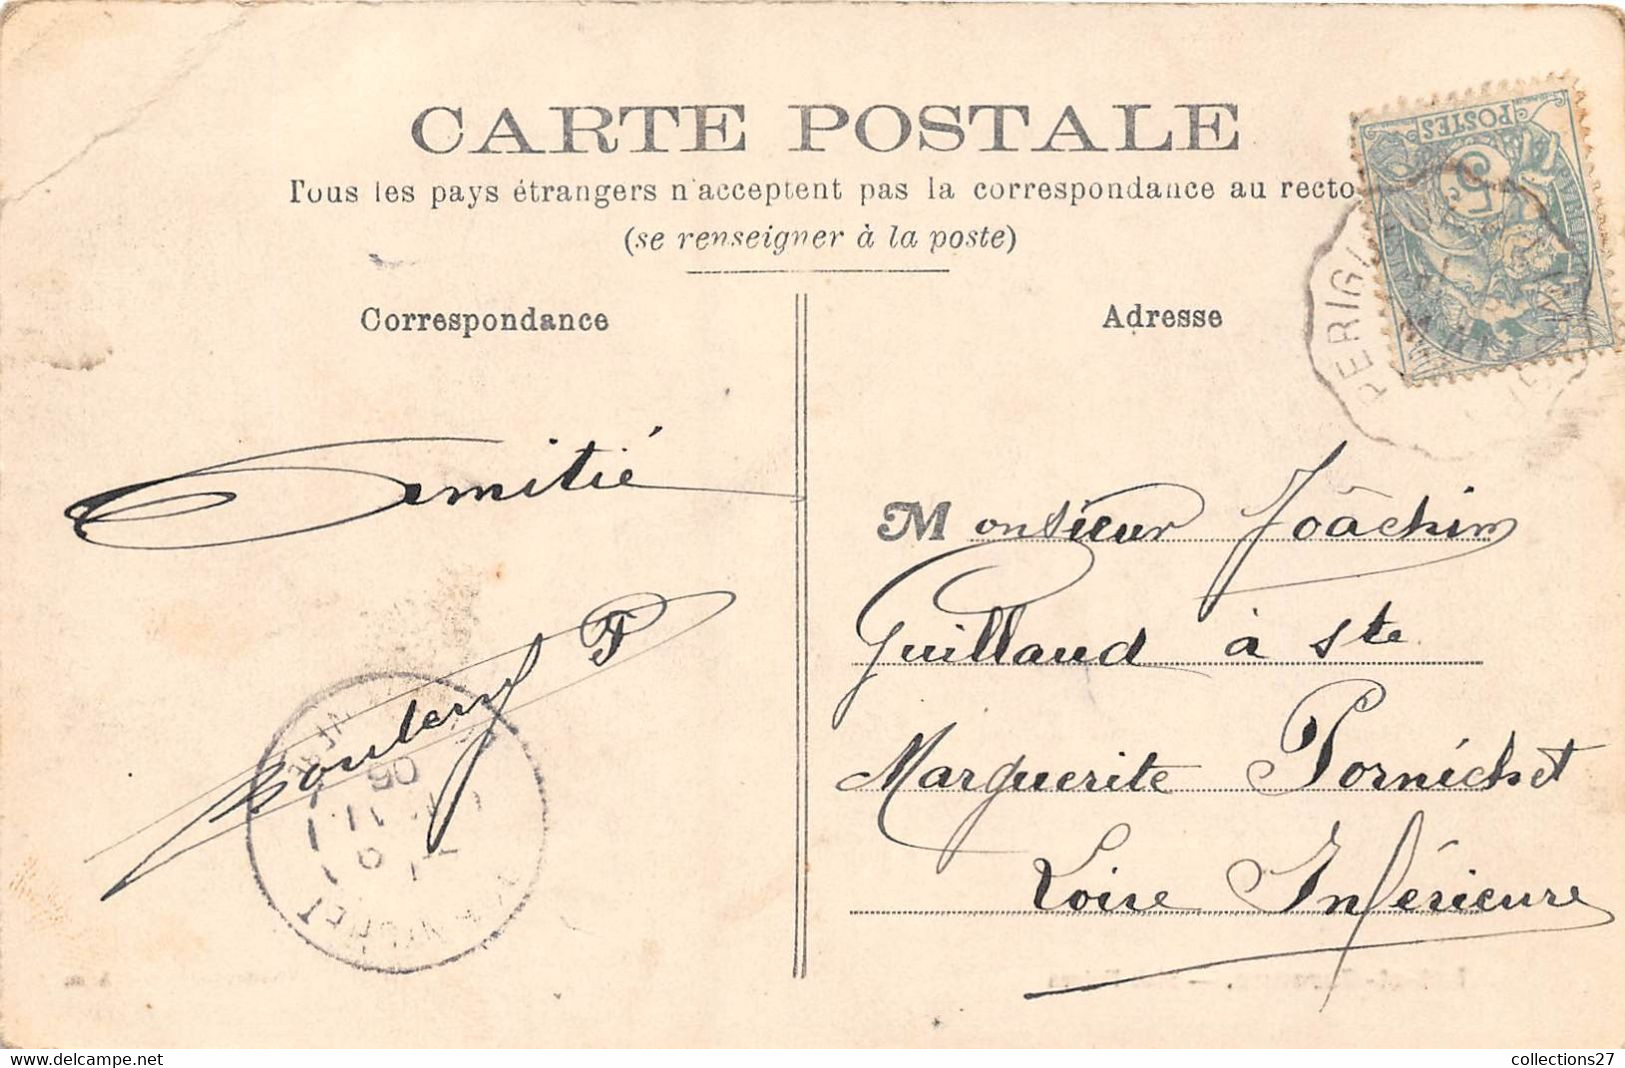 CARTE POSTALE
Tous les pays étrangers n'acceptent pas la correspondance au recto
(se renseigner à la poste)
Correspondance
Adresse
POSTES
5
PERIG
Amitié
Monsieur Joâchim
Guilland à Ste
Marguerite Pornichet
Loire Inférieure
P
11
06
collections27